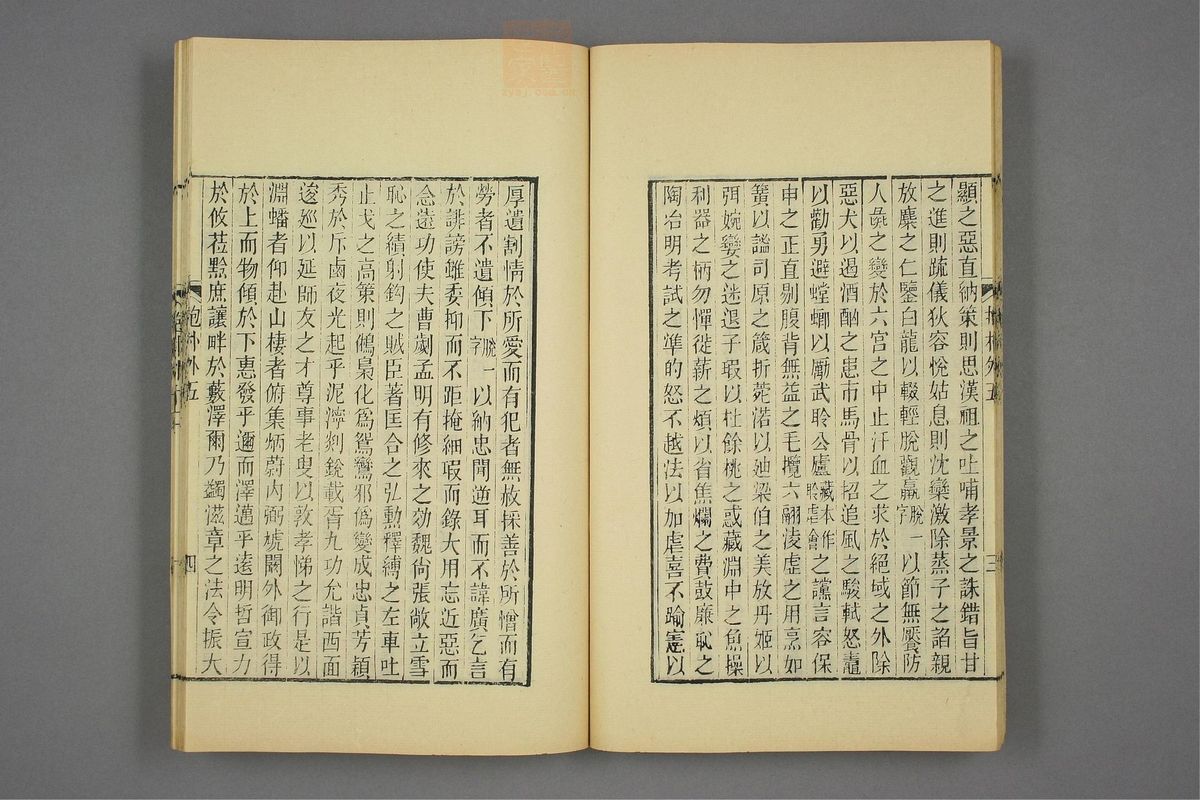 顯之惡直納策則思漢祖之吐哺孝景之誅錯旨甘
之進則疏儀狄容悅姑息則沈欒激除蒸子之諂親
放麑之仁鑒白龍以輟輕脫觀羸脫一字以節無饜防
人彘之變於六宫之中止汗血之求於絕域之外除
惡犬以遏酒酗之患市馬骨以招追風之駿軾怒鼃
以勸勇避螳螂以勵武聆公廬藏本作聆虐會之讜言容保
申之正直剔腹背無益之毛攬六翮凌虛之用烹如
簧以謐司原之箴折菀渃以迪梁伯之美放丹姬以
弭婉孌之迷退子瑕以杜餘桃之惑藏淵中之魚操
利器之柄勿憚徙薪之煩以省焦爛之費鼓廉恥之
陶冶明考試之準的怒不越法以加虐喜不踰憲以
厚遺割情於所愛而有犯者無赦採善於所憎而有
勞者不遺傾下脫一字以納忠聞逆耳而不諱廣乞言
於誹謗雖委抑而不距掩細瑕而錄大用忘近惡而
念遠功使夫曹劌孟明有修來之効魏尙張敞立雪
恥之績射鈎之賊臣著匡合之弘勳釋縛之左車吐
止戈之高策則鴟梟化爲鴛鸞邪僞變成忠貞芳穎
秀於斥鹵夜光起乎泥濘剡銳載胥九功允諧西面
逡巡以延師友之才尊事老叟以敦孝悌之行是以
淵蟠者仰赴山棲者俯集炳蔚內弼虓闞外御政得
於上而物傾於下惠發乎邇而澤邁乎遠明哲宣力
於攸莅黔庶讓畔於藪澤爾乃蠲滋章之法令振大
抱朴外五
三
抱朴外五
四